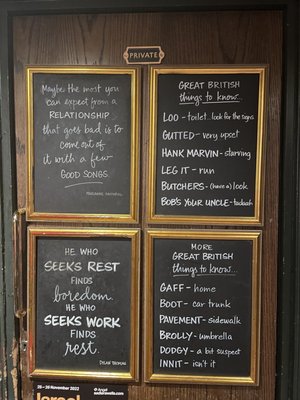 PRIVATE
Maybe the most you
can expect from a
RELATIONSHIP
that goes bad is to
come out of
it with a few
GOOD SONGS.
MARIANNE FAITHFULL
GREAT BRITISH
things to know...
LOO - toilet...look for the signs
GUTTED - very upset
HANK MARVIN - starving
LEG IT - run
BUTCHERS - (have a) look
BOB'S YOUR UNCLE - tadaah
HE WHO
SEEKS REST
FINDS
boredom.
HE WHO
SEEKS WORK
FINDS
rest
DYLAN THOMAS
MORE
GREAT BRITISH
things to know...
GAFF - home
BOOT - car trunk
PAVEMENT - sidewalk
BROLLY - umbrella
DODGY - a bit suspect
INNIT - isn't it
25 - 26 November 2022